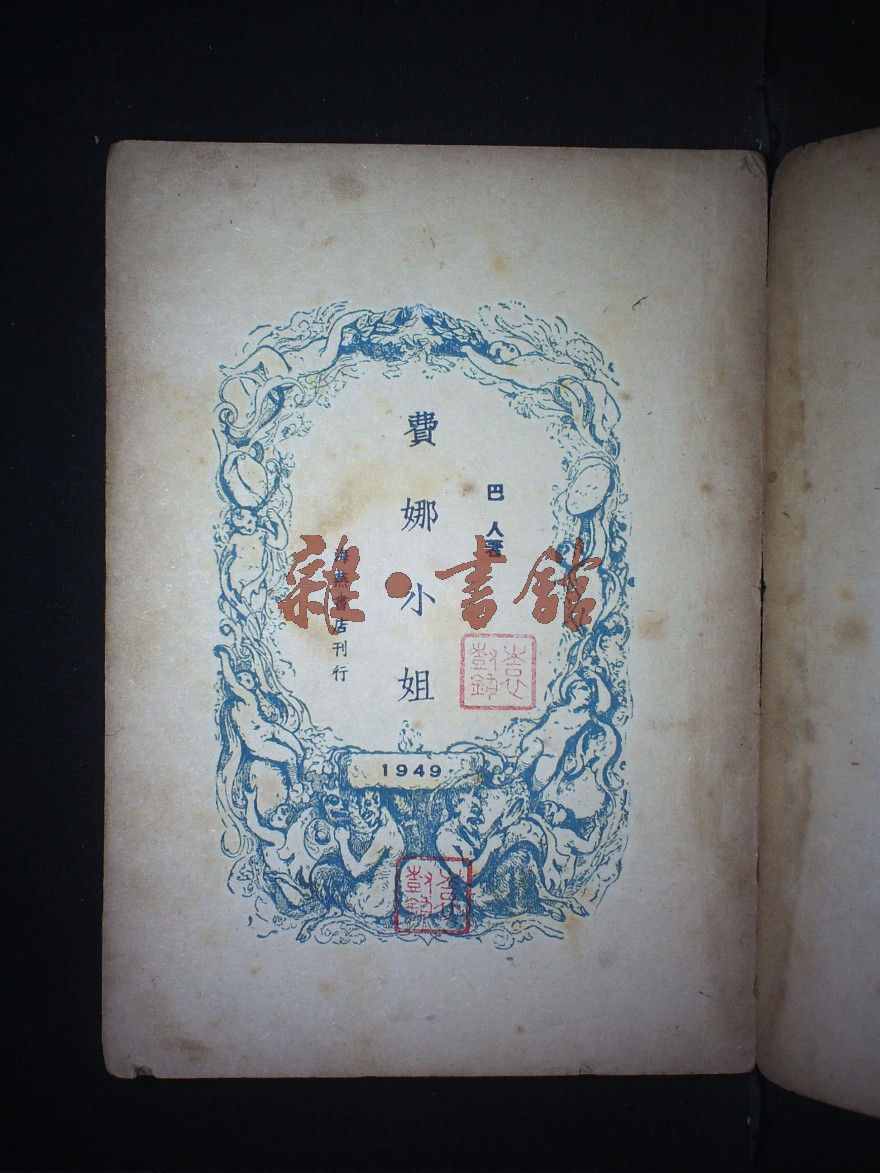 巴人著
費娜小姐
海燕書店刊行
1949
雜·書館